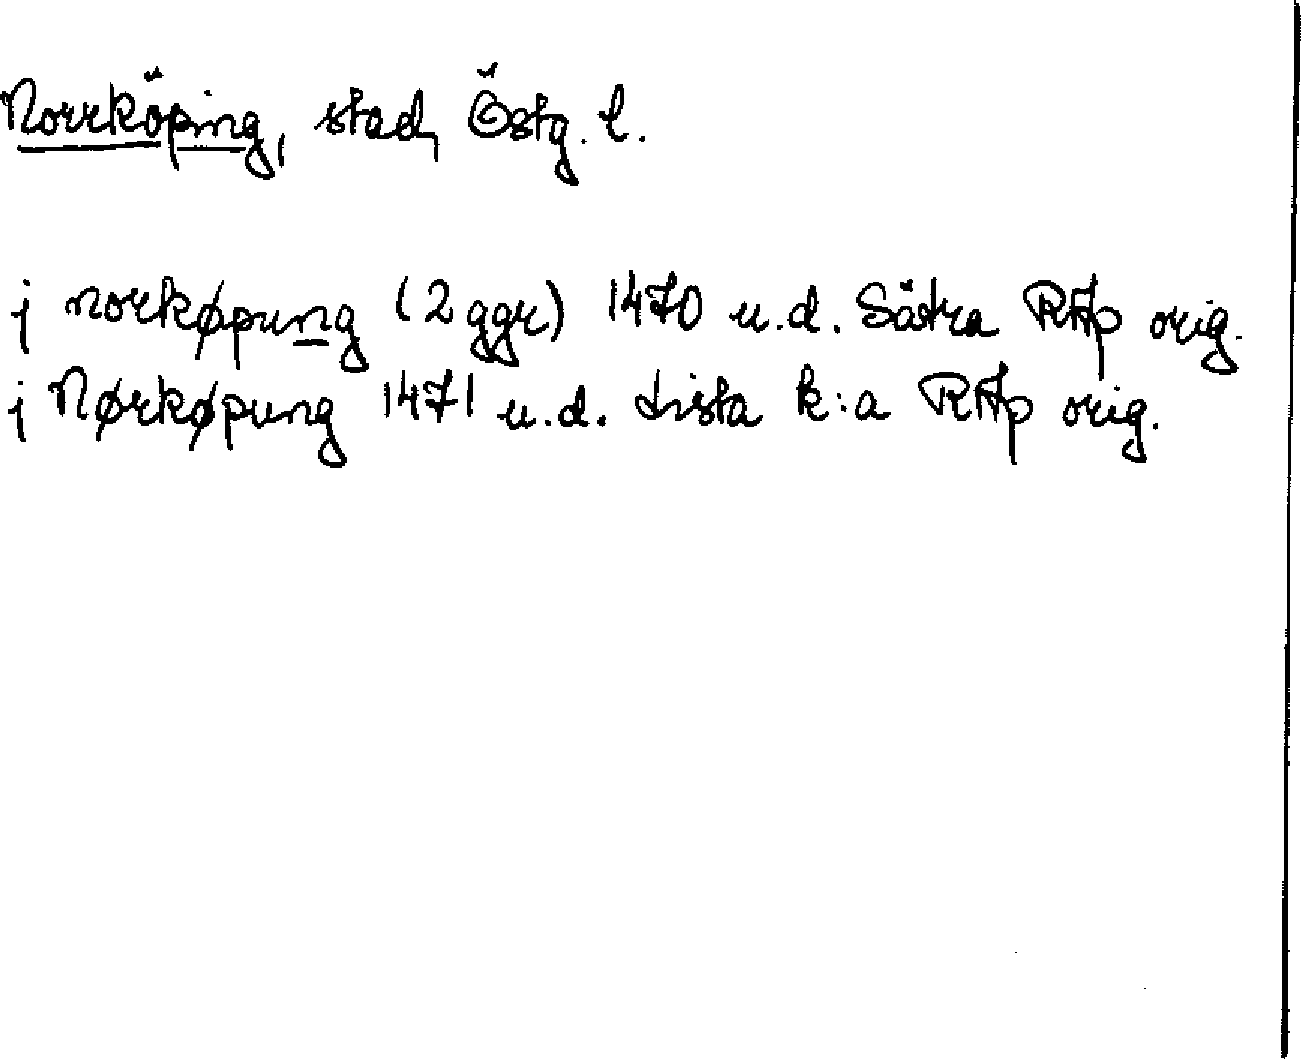 Norrköping, stad, Östg. l.
j norkøpung (2 ggr) 1470 u.d. Sätra RAp orig.
j Nørkøpung 1471 u.d. Lista k:a RAp orig.